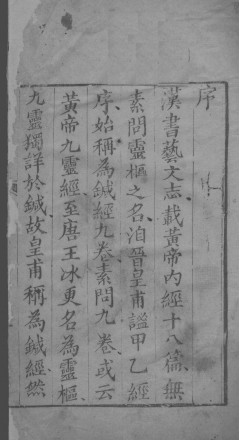 序
漢書藝文志載黃帝內經十八篇無
素問靈樞之名洎晉皇甫謐甲乙經
序始稱為鍼經九卷素問九卷或云
黃帝九靈經至唐王冰更名為靈樞
九靈獨詳於鍼故皇甫稱為鍼經然